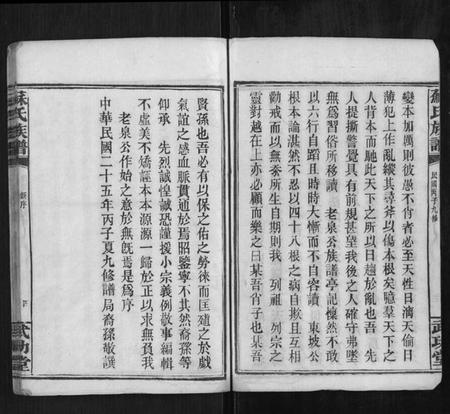 蘇氏族譜
民國丙子九修
武功堂
變本加厲則彼愚不肖者必至天性日漓天倫日
薄犯上作亂縱其尋斧以傷本根矣噫羣天下之
人背本而馳此天下之所以日趨於亂也吾　先
人提撕警覺具有前規甚望我後之人確守弗墜
無爲習俗所移讀　老泉公族譜亭記懷然不敢
以六行自蹈且時時大懼而不自容讀　東坡公
根本論湛然不忍以四十八根之病自欺且互相
勸戒而以無忝所生自期則我　列祖　列宗之
靈對越在上亦必顧而樂之曰某吾肖子也某吾
賢孫也吾必有以保之佑之勞徠而匡翼之於戲
氣誼之感血脈貫通於焉昭鑒寧不其然裔孫等
仰承　先烈誠惶誠恐謹援小宗義例敬事編輯
不虛美不矯誣本本源源一歸於正以求無負我
老泉公作始之意於無旣焉是爲序
中華民國二十五年丙子夏九修譜局裔孫敬譔
蘇氏族譜
序
武功堂